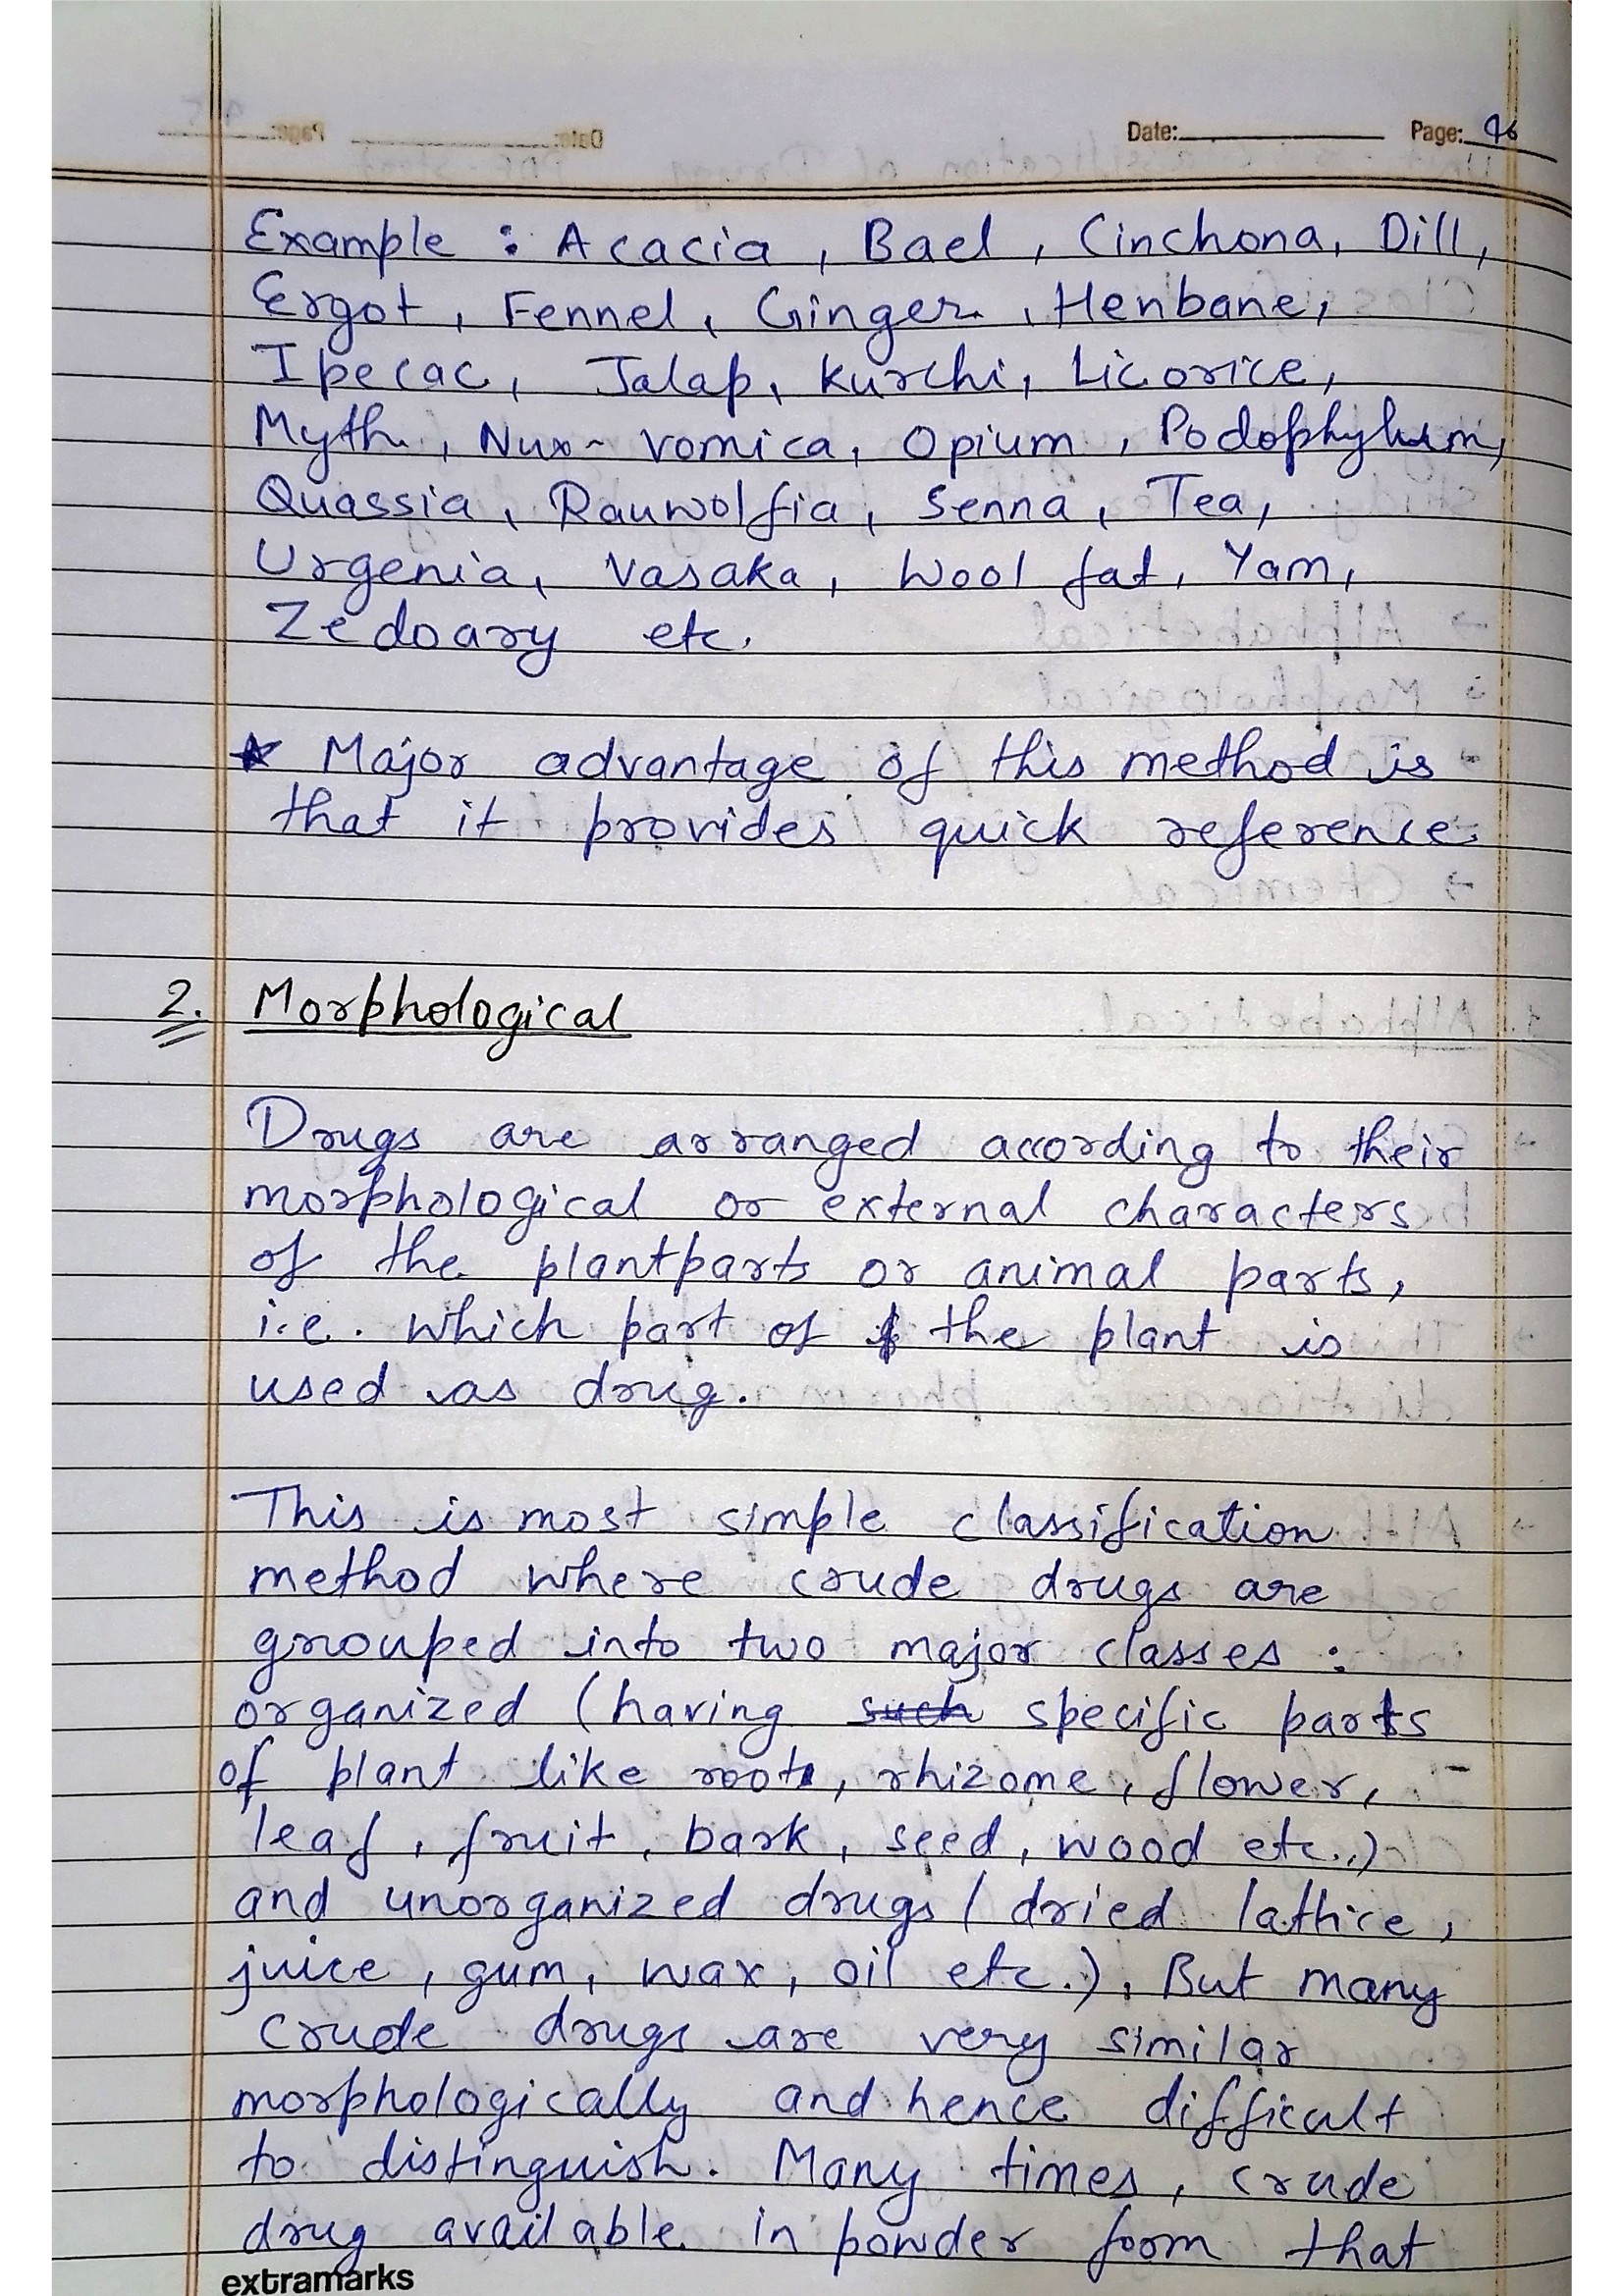 Date: Page: 96
Example : Acacia, Bael, Cinchona, Dill,
Ergot, Fennel, Ginger, Henbane,
Ipecac, Jalap, Kurchi, Licorice,
Myth, Nux-vomica, Opium, Podophyllum,
Quassia, Rauwolfia, Senna, Tea,
Urgenia, Vasaka, Wool fat, Yam,
Zedoary etc.
★ Major advantage of this method is
that it provides quick reference.
2. Morphological
Drugs are arranged according to their
morphological or external characters
of the plantparts or animal parts,
i.e. which part of the plant is
used as drug.
This is most simple classification
method where crude drugs are
grouped into two major classes :
organized (having such specific parts
of plant like root, rhizome, flower,
leaf, fruit, bark, seed, wood etc.,)
and unorganized drugs (dried lattice,
juice, gum, wax, oil etc.), But many
crude drugs are very similar
morphologically and hence difficult
to distinguish. Many times, crude
drug available in powder form that
extramarks